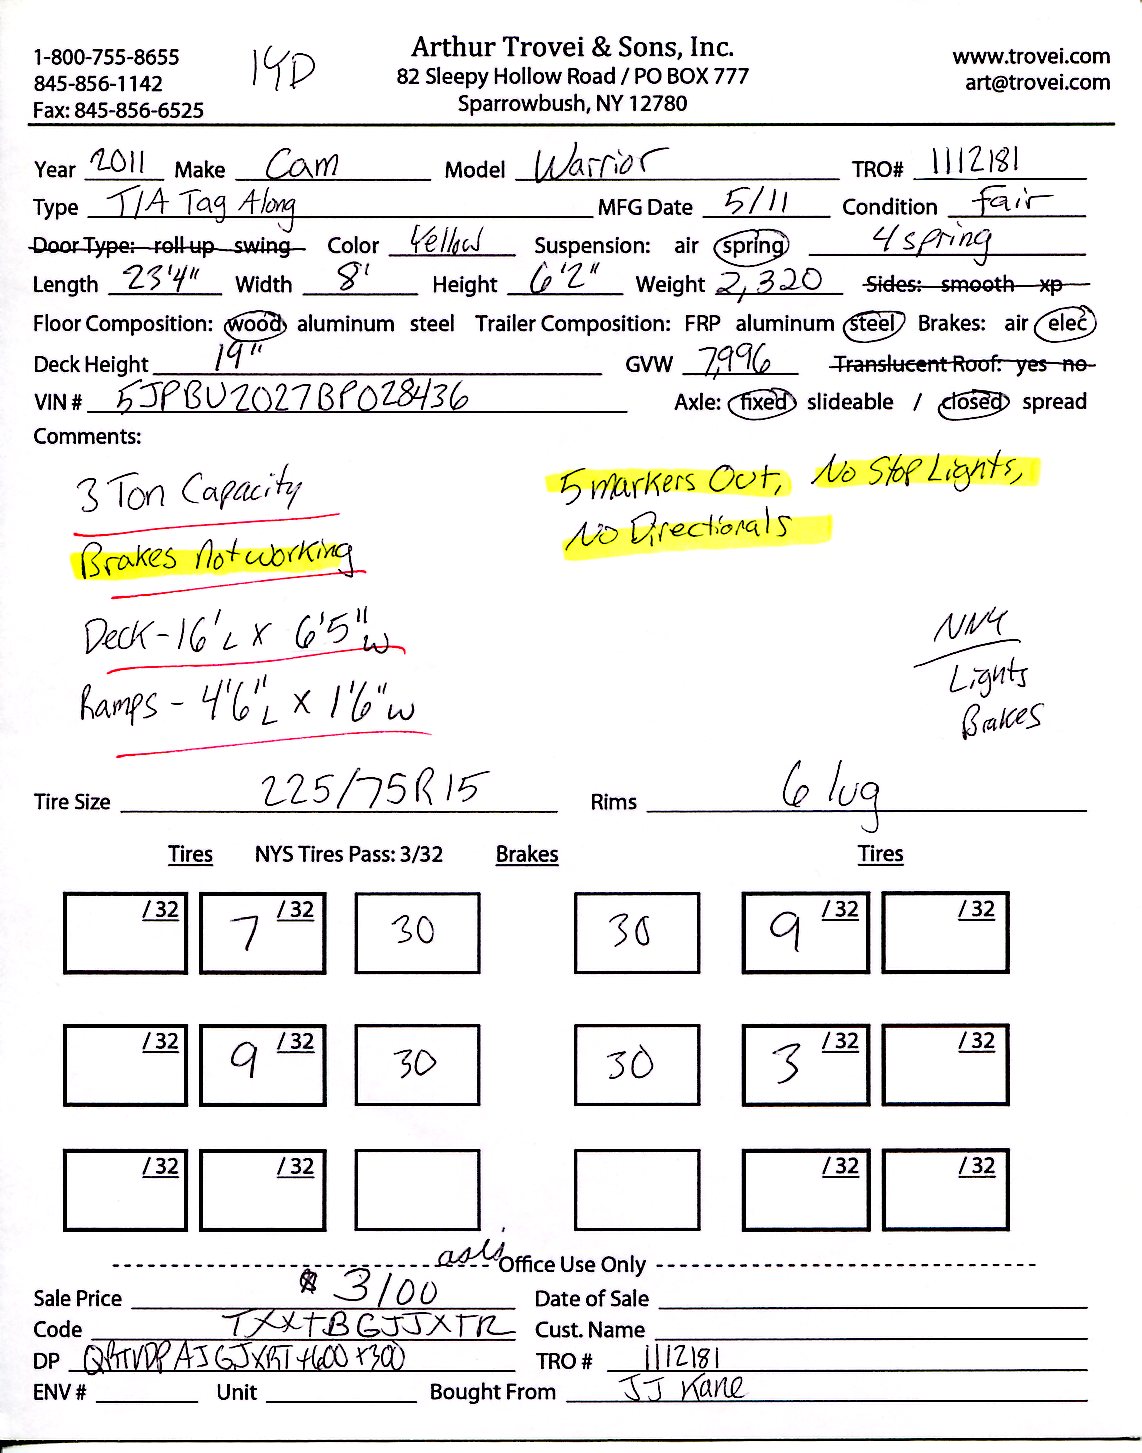 1-800-755-8655
845-856-1142
Fax: 845-856-6525
14D
Arthur Trovei & Sons, Inc.
82 Sleepy Hollow Road / PO BOX 777
Sparrowbush, NY 12780
www.trovei.com
art@trovei.com
Year 2011 Make Cam Model Warrior TRO# 1112181
Type T/A Tag Along MFG Date 5/11 Condition fair
Door Type: roll up swing Color Yellow Suspension: air spring 4 spring
Length 23'4" Width 8' Height 6'2" Weight 2,320 Sides: smooth xp
Floor Composition: wood aluminum steel Trailer Composition: FRP aluminum steel Brakes: air elec
Deck Height 19" GVW 7,996 Translucent Roof: yes no
VIN # 5JPBU2027BP028436 Axle: fixed slideable / closed spread
Comments:
3 Ton Capacity
Brakes Not working
Deck - 16' L X 6'5" W
Ramps - 4'6" L X 1'6" W
5 markers Out, No Stop Lights,
No Directionals
NNY
Lights
Brakes
Tire Size 225/75R15 Rims 6 lug
Tires NYS Tires Pass: 3/32 Brakes Tires
/32 7 /32 30 30 9 /32 /32
/32 9 /32 30 30 3 /32 /32
/32 /32 /32 /32
as is Office Use Only
Sale Price $ 3100 Date of Sale
Code TXXTBGJJXTR Cust. Name
DP +600 +300 TRO # 1112181
ENV # Unit Bought From JJ Kane